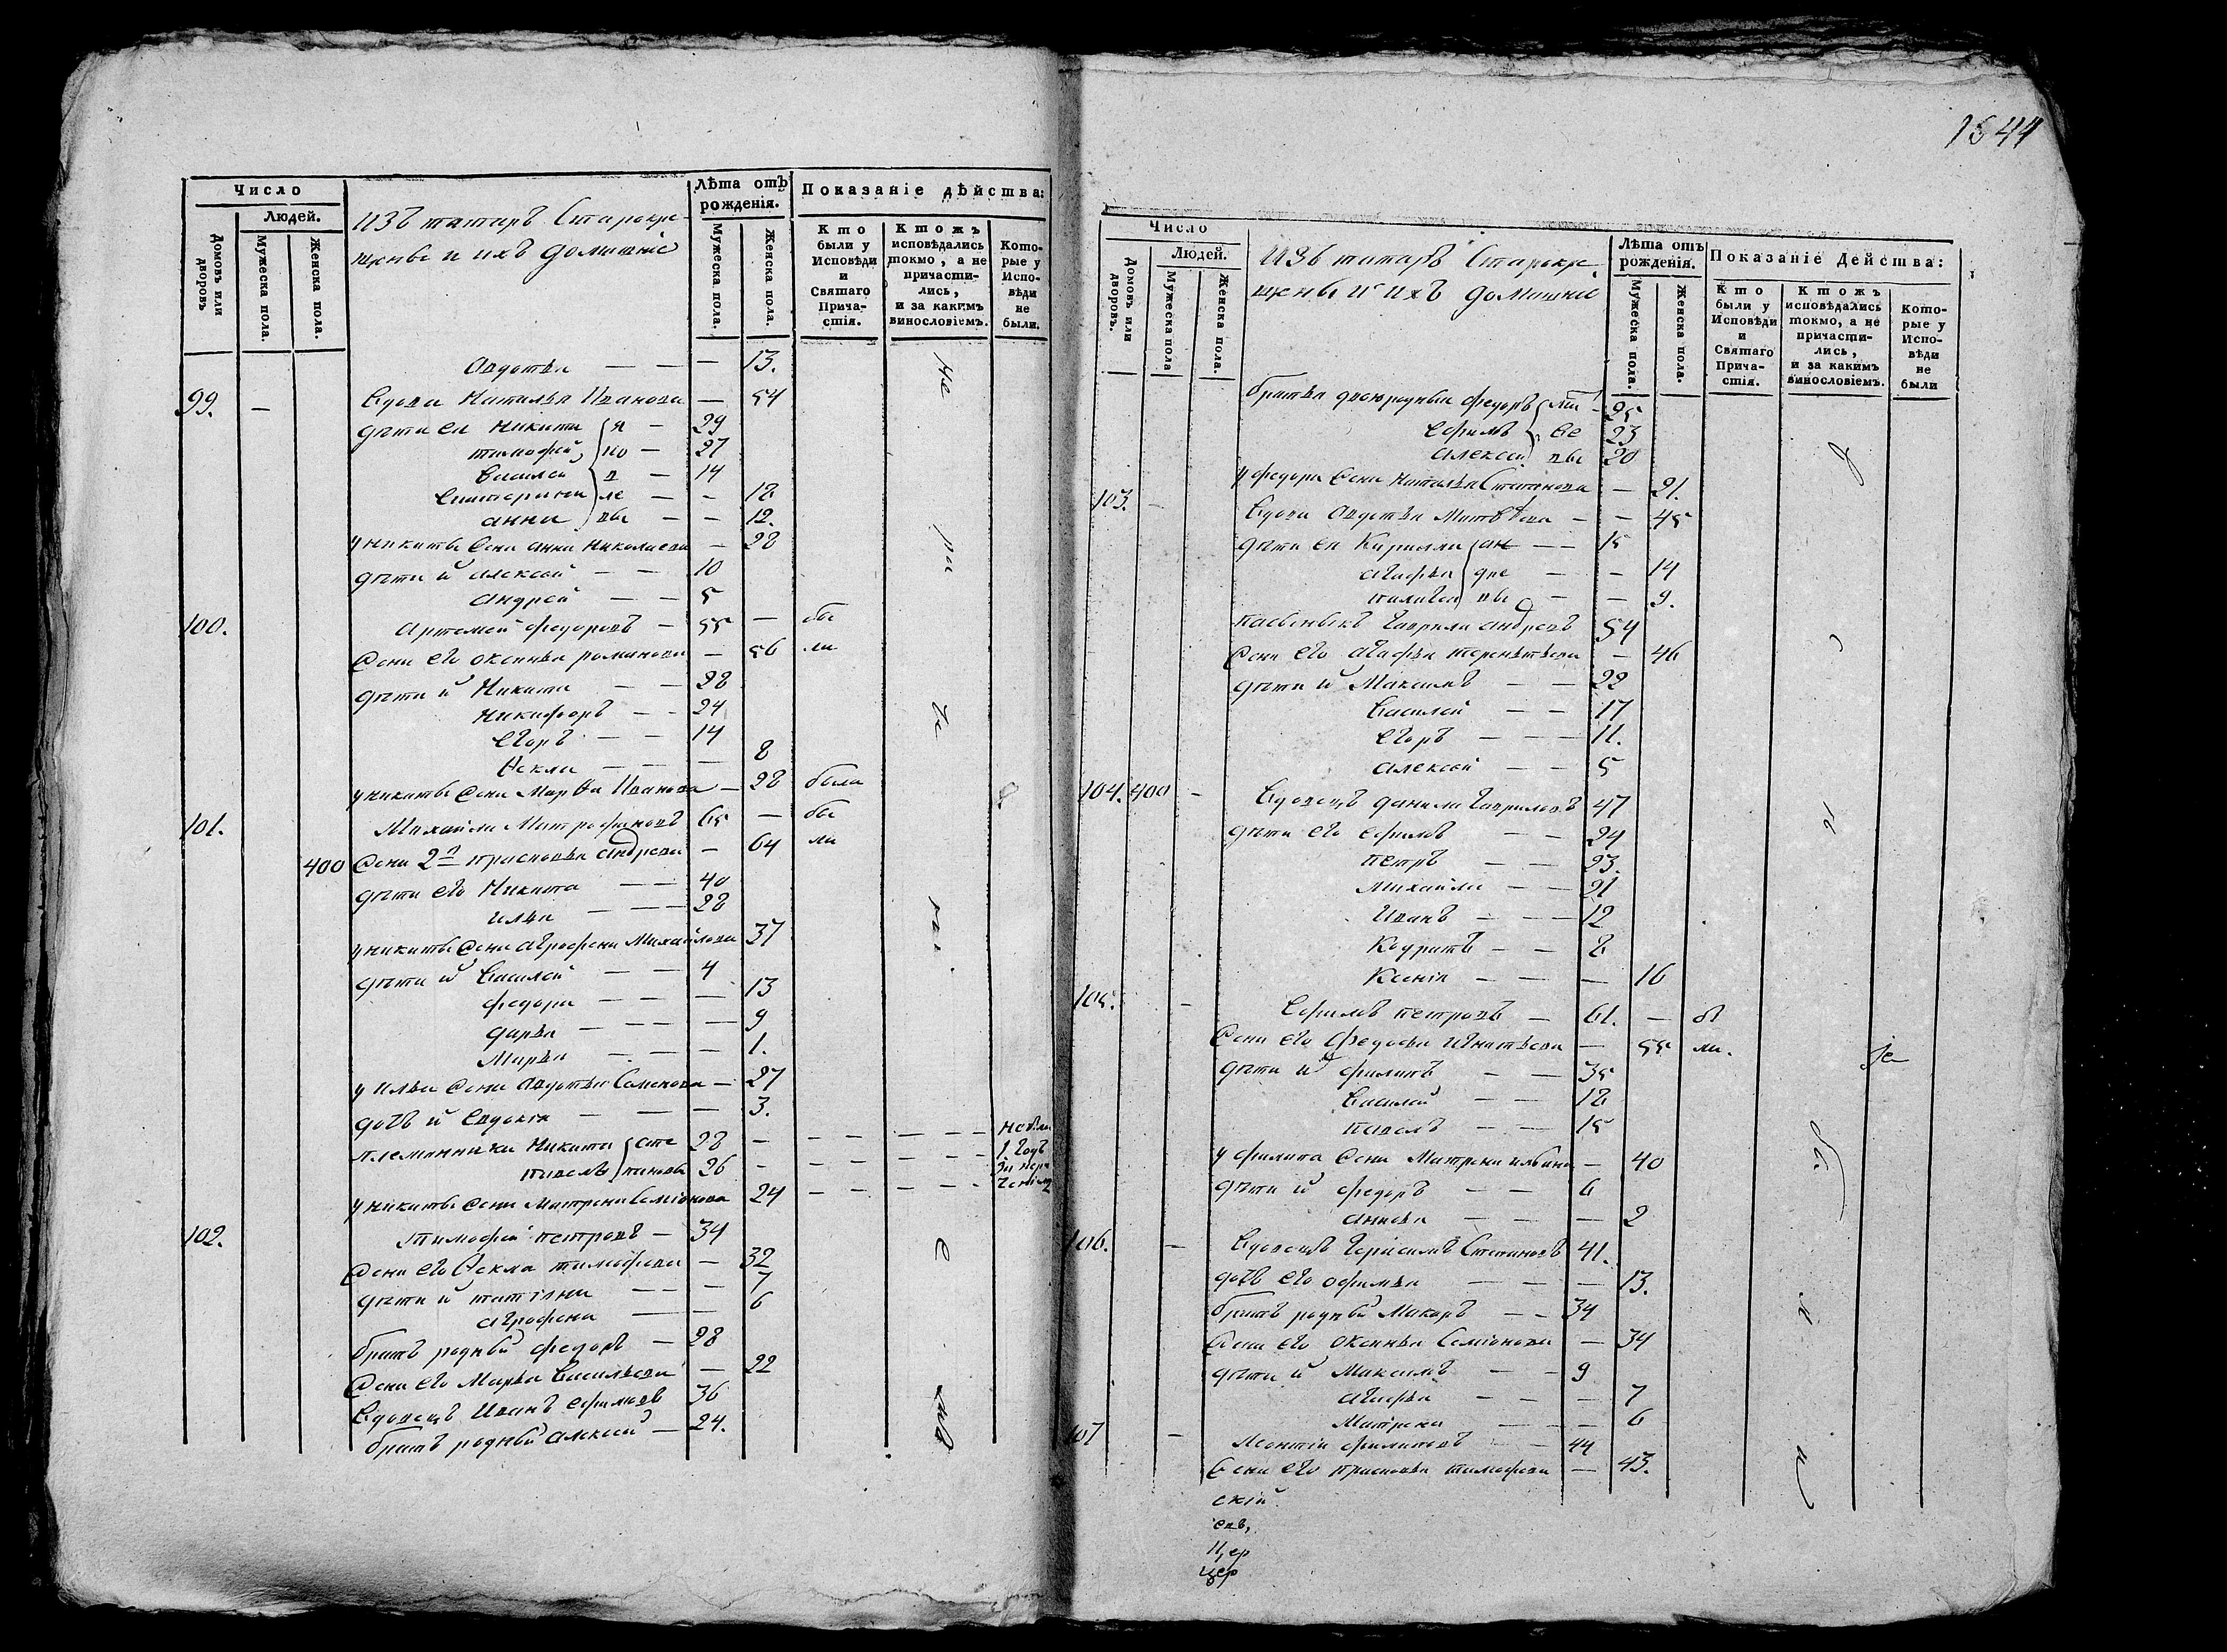 1544
Число
Людей.
Домовъ или дворовъ
Мужеска пола.
Женска пола.
Изъ татаръ Старокре
щены и ихъ домашніе
Лѣта отъ рожденія.
Мужеска пола.
Женска пола.
Показаніе дѣйства:
Кто были у Исповѣди и Святаго Прича-стія.
Ктожъ исповѣдались токмо, а не причасти-лись, и за какимъ винословіемъ.
Кото-рые у Испо-вѣди не были.
Авдотья — — — 13.
99. — Вдова Наталья Иванова — 54
дѣти ея Никита я — 29
тимофей, ко — 27
Василей в — 14
Екатерина ле — — 18
анна вы — — 12.
у никиты Жена анна Николаева — 28
дѣти и алексей — — 10
андрей — — 5
100. Артемей федоровъ — 55 — бы
Жена его оксинья романова — 56 ли
дѣти и Никита — — 28
Никифоръ — — 24
Егоръ — — 14
Ѳекла — — — 8
у никиты Жена Марѳа Иванова — 28 была
101. Михайла Митрофановъ 65 — бы
400 Жена 2я прасковья андреева — 64 ли
дѣти его Никита — — 40
илья — — — 28
у никиты Жена агрофена Михайлова 37
дѣти и Василей — — 4
федора — — — 13
дарья — — — — 9
Марья — — — 1.
у ильи Жена авдотья Семенова — 27
дочь и Евдокія — — — 3.
племянники Никита сте 28 — — — — —
павелъ пановы 26 — — — — — 1 годъ
у никиты Жена матрена Семіонова 24 — — — —
102. тимофей петровъ — 34
Жена его Ѳекла тимофеева — 32
дѣти и татіяна — — — 7
агрофена — — 6
братъ родный федоръ — 28
Жена его Марья Васильева — 22
Вдовецъ Иванъ ефимовъ 36
братъ родный алексей — 24.
Число
Людей.
Домовъ или дворовъ.
Мужеска пола
Женска пола.
Изъ татаръ Старокре
щены и ихъ домашніе
Лѣта отъ рожденія.
Мужеска пола.
Женска пола.
Показаніе Дейсшва:
Кто были у Исповѣди и Святаго Прича-стія.
Ктожъ исповѣдались токмо, а не причасти-лись, и за какимъ винословіемъ.
Кото-рые у Испо-вѣди не были
братья двоюродныи федоръ 25
Ефимъ 23
алексей вы 20
у федора Жена Наталья Степанова — 21.
103. — Вдова авдотья Матвѣева — — 45
дѣти ея Кирилла ан — — 15
агафья дре — — 14
пелагея вы — — 9.
пасынькъ гаврила андреевъ 54
Жена его агафья терентьева — 46
дѣти и Максимъ — — 22
Василей — — 17
Егоръ — — — 11.
алексей — — 5
104. 400 — Вдовецъ данила гавриловъ 47
дѣти его ефимъ — — 24
петръ — — 23.
михайла — — 21
Иванъ — — — 12
Кодратъ — — 8
Ксенія — — — 16
105. — Ефимъ петровъ — 61. — бы
Жена его федосья игнатьева — 55 ли.
дѣти и филипъ — — 35
Василей — — 18
павелъ — — 15
у филипа Жена матрена ильина — 40
дѣти и федоръ — — 6
анисья — — — 2
106. — Вдовецъ герасимъ Степановъ 41.
дочь его офимья — — — 13.
братъ родный Макаръ — — 34
Жена его оксинья Семіонова — 34
дѣти и Максимъ — — 9
агафья — — — 7
Матрена — — — 6
107 — Леонтій филиповъ — — 44
Жена его прасковья тимофеева — 43.
скій
евъ,
цер
цер